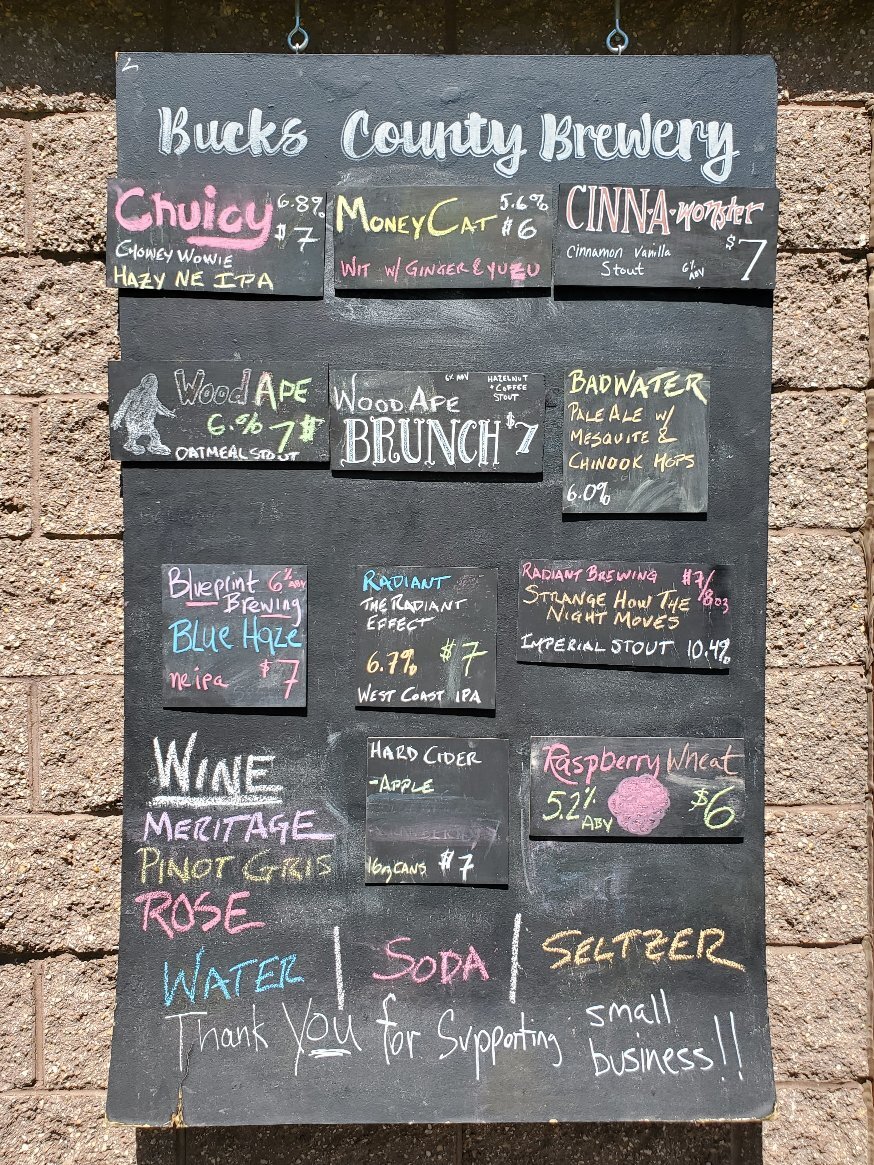 Bucks County Brewery
Chuicy 6.8%
$7
CHOWEY WOWIE
HAZY NE IPA
MONEY CAT 5.6%
$6
WIT W/ GINGER & YUZU
CINNA•monster
Cinnamon Vanilla
Stout 6% ABV $7
Wood APE
6.% 7$
OATMEAL STOUT
6% ABV HAZELNUT
+ COFFEE
STOUT
WOOD APE
BRUNCH $7
BADWATER
PALE ALE W/
MESQUITE &
CHINOOK HOPS
6.0%
Blueprint 6% ABV
Brewing
BLUE HAZE
neipa $7
RADIANT
THE RADIANT
EFFECT
6.7% $7
WEST COAST IPA
RADIANT BREWING $7/8oz
STRANGE HOW THE
NIGHT MOVES
IMPERIAL STOUT 10.4%
WINE
MERITAGE
PINOT GRIS
ROSE
HARD CIDER
-APPLE
16oz CANS $7
Raspberry Wheat
5.2% ABV $6
WATER | SODA | SELTZER
Thank you for Supporting small
business!!